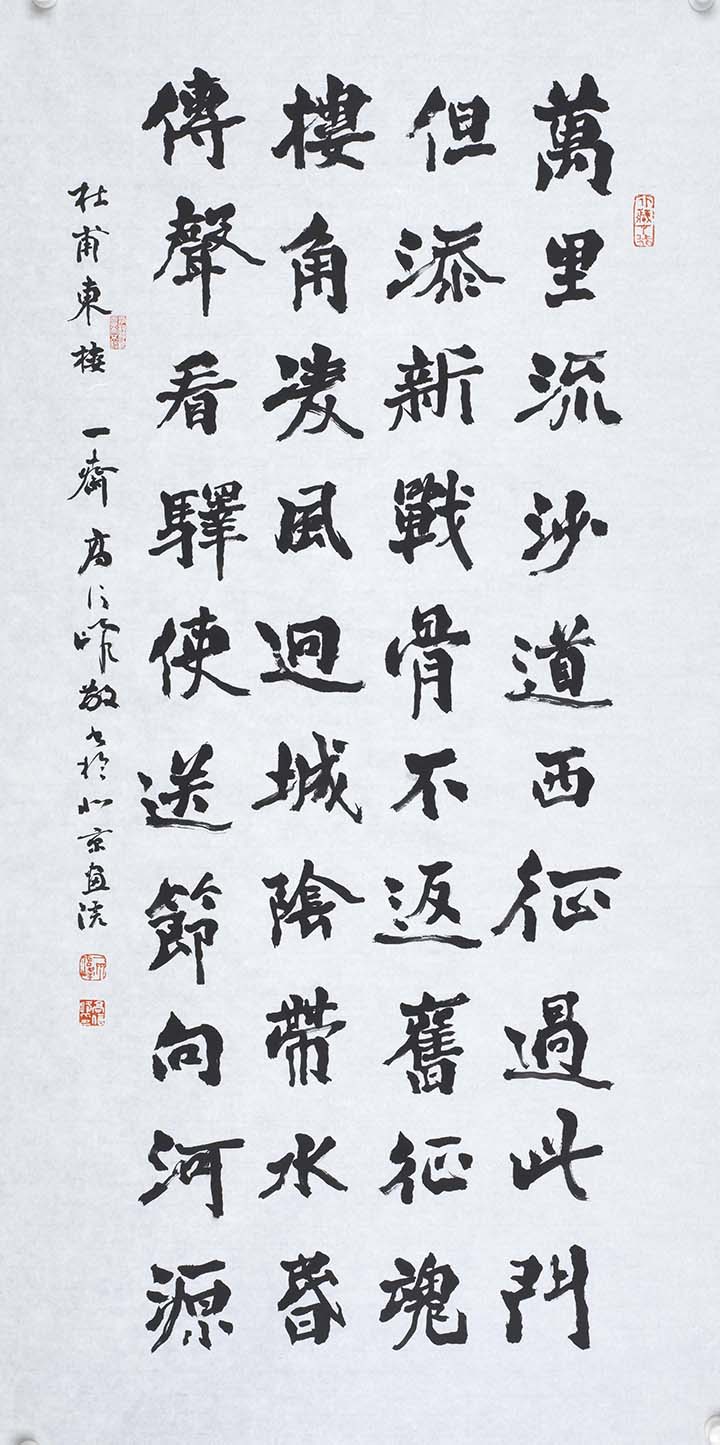 萬里流沙道西征過此門
但添新戰骨不返舊征魂
樓角凌風迥城陰帶水昏
傳聲看驛使送節向河源
杜甫東樓 一齋高 敬書於北京畫院